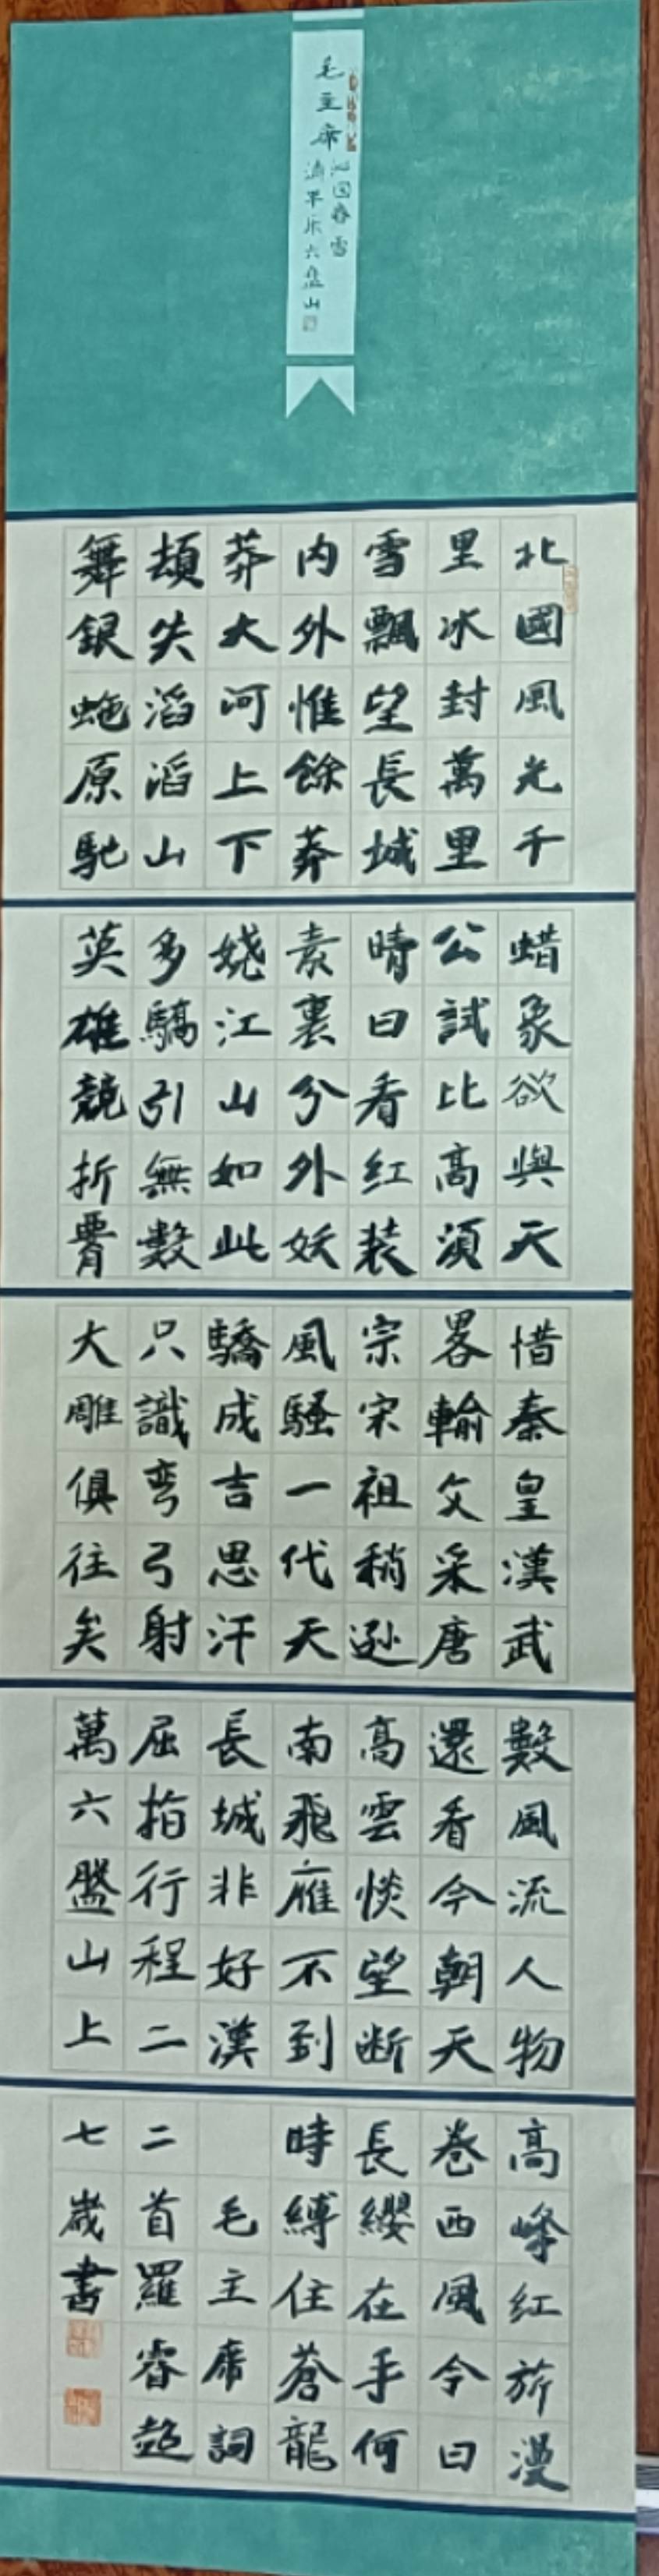 毛主席
沁园春雪
清平乐六盘山
北國風光千
里冰封萬里
雪飄望長城
内外惟餘莽
莽大河上下
頓失滔滔山
舞銀蛇原馳
蜡象欲與天
公試比高須
晴日看紅装
素裹兮外妖
嬈江山如此
多驕引無數
英雄競折
惜秦皇漢武
畧輸文采唐
宗宋祖稍遜
風騷一代天
驕成吉思汗
只識弯弓射
大雕俱往矣
數風流人物
還看今朝天
高雲惔望断
南飛雁不到
長城非好漢
屈指行程二
萬六盤山上
高峰紅旂漫
巻西風今日
長纓在手何
時縛住蒼龍
毛主席詞
二首羅睿超
七歲書